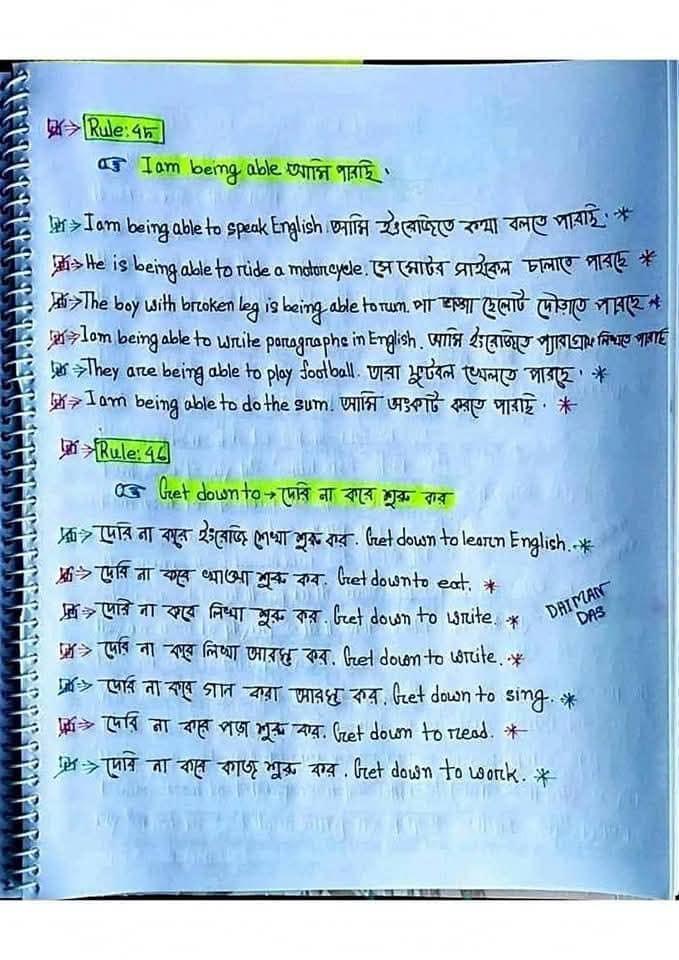 Rule: 45
I am being able আমি পারছি.
I am being able to speak English. আমি ইংরেজিতে কথা বলতে পারছি.
He is being able to ride a motorcycle. সে মোটর সাইকেল চালাতে পারছে
The boy with broken leg is being able to run. পা ভাঙ্গা ছেলেটি দৌড়াতে পারছে
I am being able to write paragraphs in English. আমি ইংরেজিতে প্যারাগ্রাফ লিখতে পারছি
They are being able to play football. তারা ফুটবল খেলতে পারছে.
I am being able to do the sum. আমি অংকটি করতে পারছি.
Rule: 46
Get down to → দেরি না করে শুরু কর
দেরি না করে ইংরেজি শেখা শুরু কর. Get down to learn English.
দেরি না করে খাওয়া শুরু কর. Get down to eat.
দেরি না করে লিখা শুরু কর. Get down to write.
দেরি না করে লিখা আরম্ভ কর. Get down to write.
দেরি না করে গান করা আরম্ভ কর. Get down to sing.
দেরি না করে পড়া শুরু কর. Get down to read.
দেরি না করে কাজ শুরু কর. Get down to work.
DAIMAN
DAS